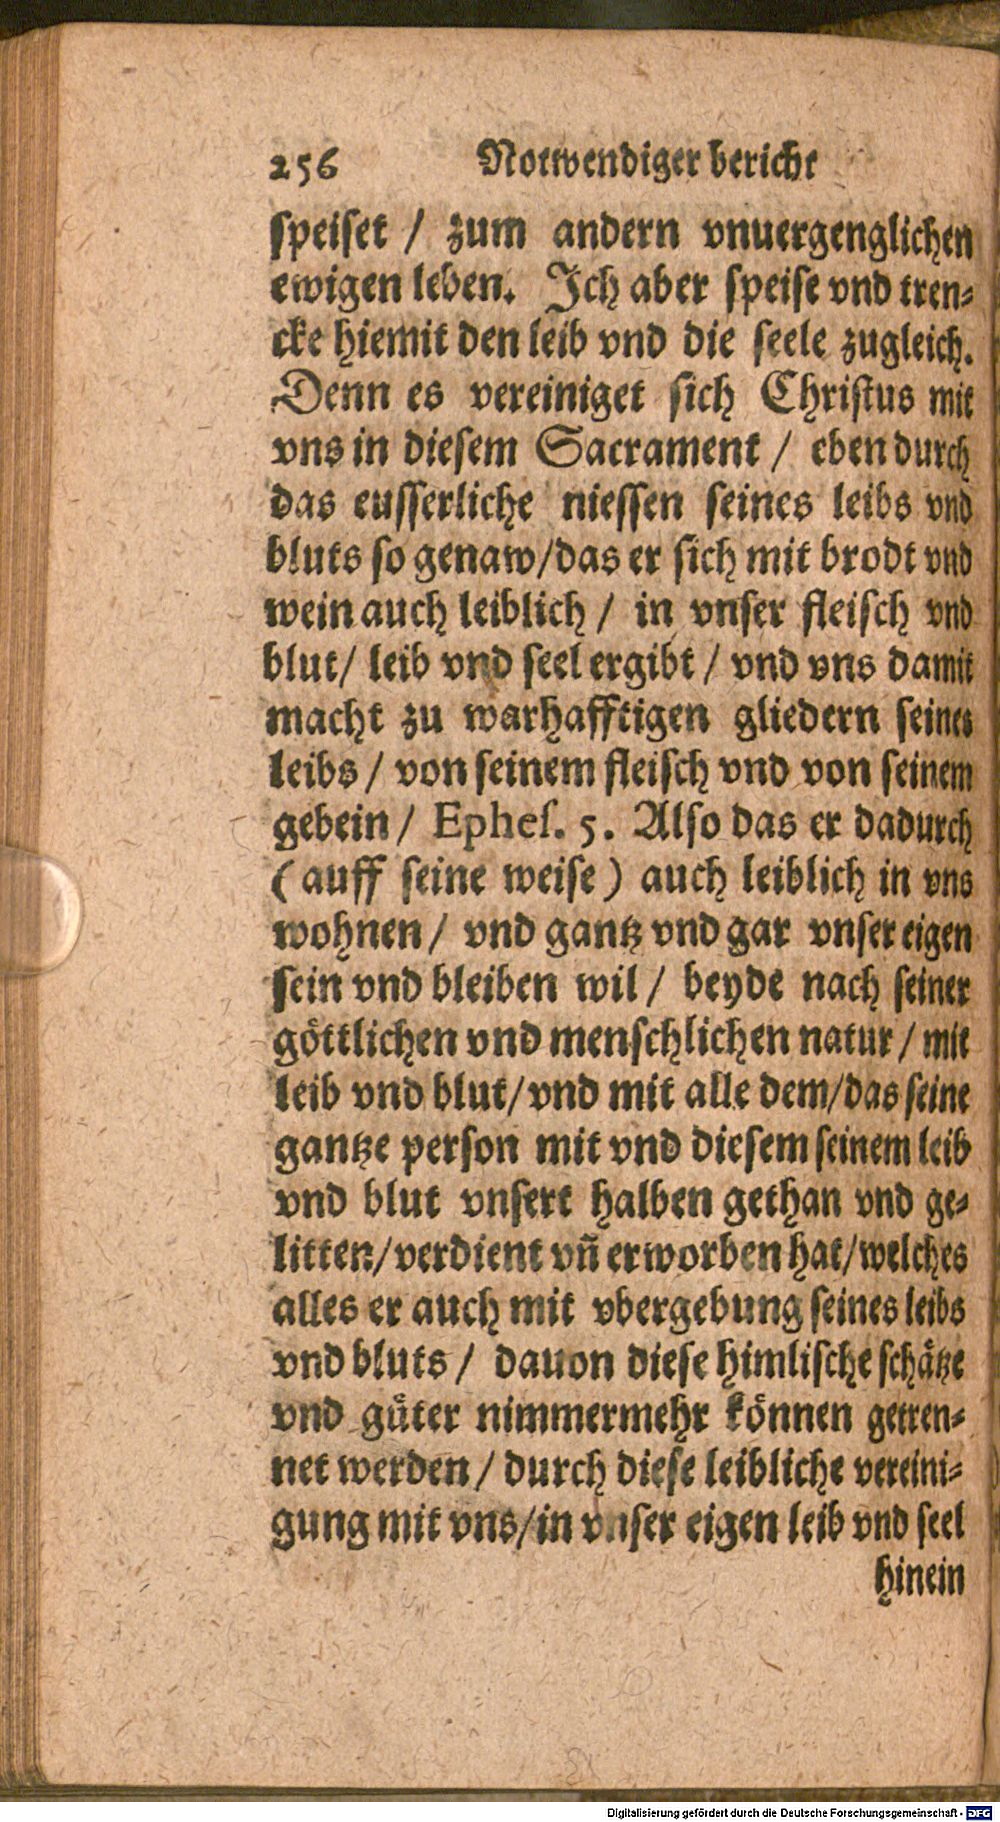 256 Notwendiger bericht
speiset / zum andern vnuergenglichen
ewigen leben. Ich aber speise vnd tren-
cke hiemit den leib vnd die seele zugleich.
Denn es vereiniget sich Christus mit
vns in diesem Sacrament / eben durch
das eusserliche niessen seines leibs vnd
bluts so genaw/das er sich mit brodt vnd
wein auch leiblich / in vnser fleisch vnd
blut/ leib vnd seel ergibt / vnd vns damit
macht zu warhafftigen gliedern seines
leibs / von seinem fleisch vnd von seinem
gebein / Ephes. 5. Also das er dadurch
(auff seine weise) auch leiblich in vns
wohnen / vnd gantz vnd gar vnser eigen
sein vnd bleiben wil / beyde nach seiner
göttlichen vnd menschlichen natur / mit
leib vnd blut/vnd mit alle dem/das seine
gantze person mit vnd diesem seinem leib
vnd blut vnsert halben gethan vnd ge-
litten/verdient vñ erworben hat/welches
alles er auch mit vbergebung seines leibs
vnd bluts / dauon diese himlische schätze
vnd güter nimmermehr können getren-
net werden / durch diese leibliche vereini-
gung mit vns/in vnser eigen leib vnd seel
hinein
Digitalisierung gefördert durch die Deutsche Forschungsgemeinschaft - DFG